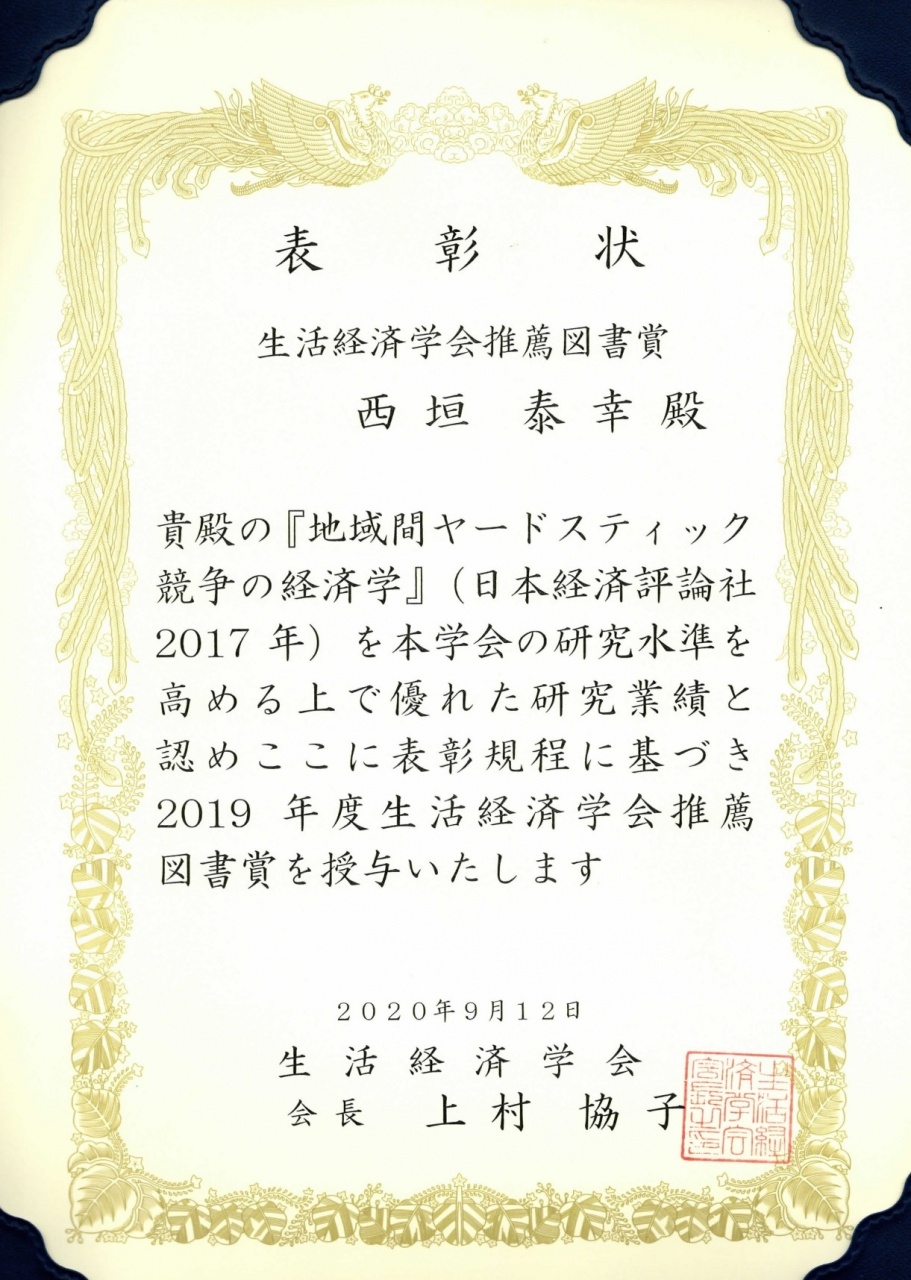 表彰状
生活経済学会推薦図書賞
西垣 泰幸 殿
貴殿の『地域間ヤードスティック
競争の経済学』（日本経済評論社
2017 年）を本学会の研究水準を
高める上で優れた研究業績と
認めここに表彰規程に基づき
2019 年度生活経済学会推薦
図書賞を授与いたします
２０２０年９月１２日
生活経済学会
会長 上村 協子
生活経
済学会
会長之印